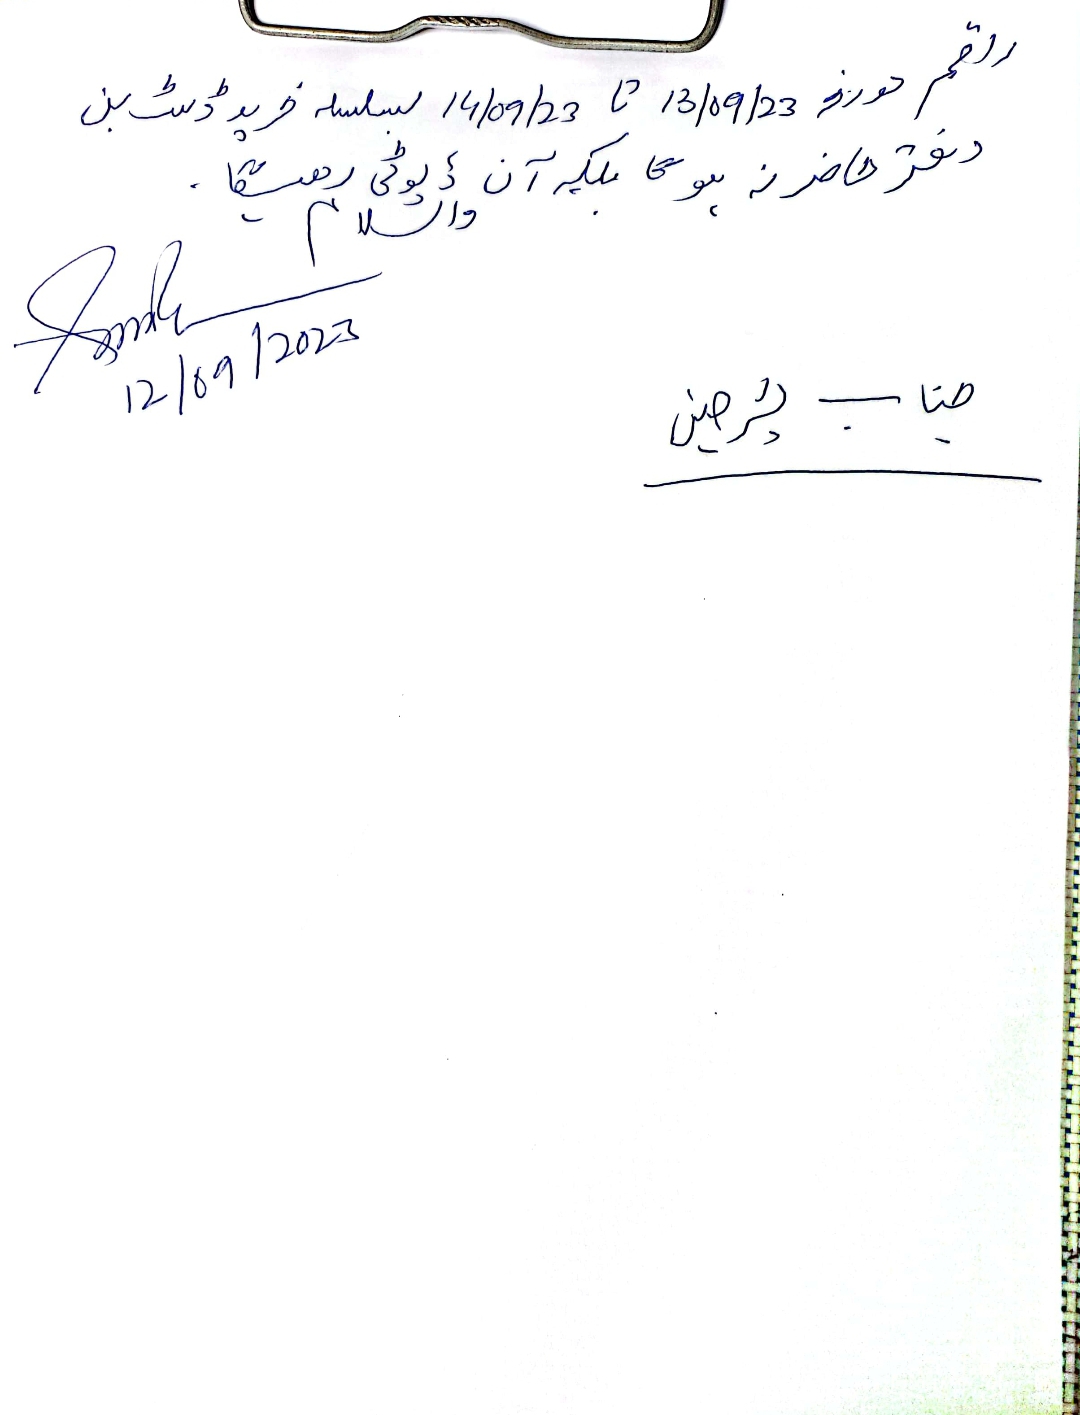 راقم مورخہ 13/09/23 تا 14/09/23 بسلسلہ خرید ڈسٹ بن
دفتر حاضر نہ ہو گا بلکہ آن ڈیوٹی رھیگا۔
والسلام
12/09/2023
جناب چئرمین